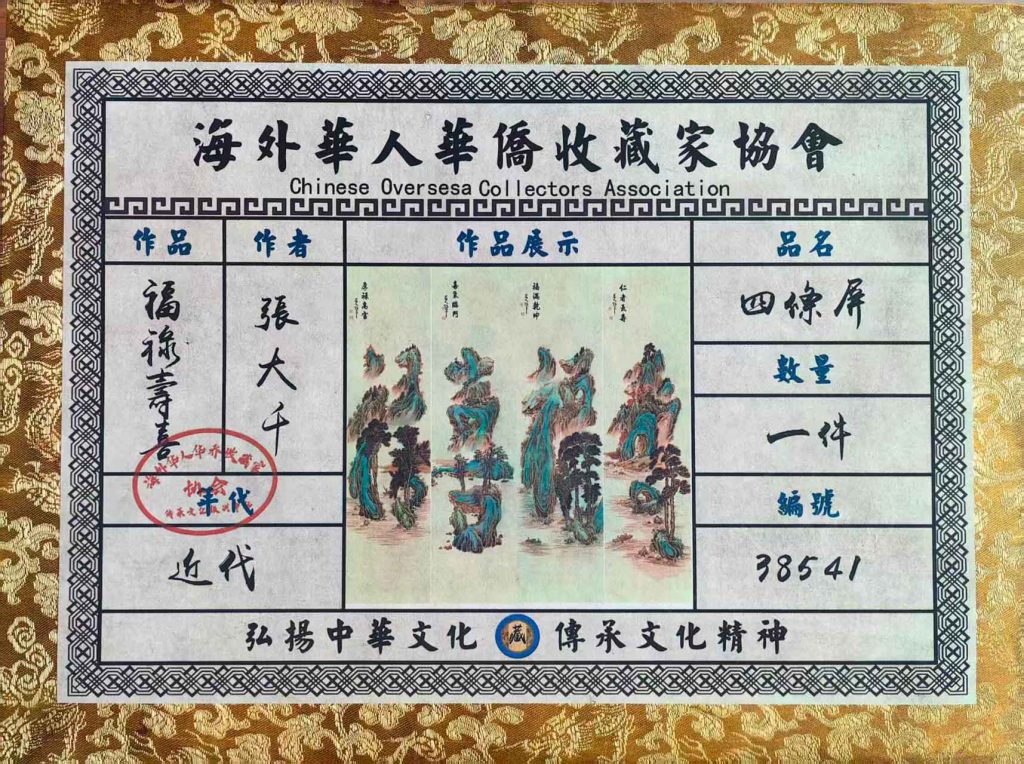 海外華人華僑收藏家協會
Chinese Oversesa Collectors Association
作品 作者 作品展示 品名
福祿壽喜
張大千
厚禄高官
喜氣臨門
福滿乾坤
仁者長壽
四條屏
数量
一件
年代
編號
近代
38541
海外华人华侨收藏家
协会
弘揚中華文化 藏 傳承文化精神